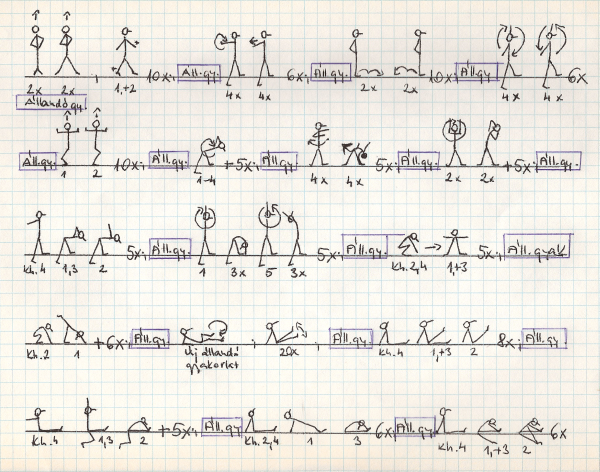 10x; Áll.gy. 6x; Áll.gy. 10x; Áll.gy. 6x
2x 2x 1,+2 4x 4x 2x 2x 4x 4x
Állandó gy.
Áll.gy. 10x; Áll.gy. +5x; Áll.gy. 5x; Áll.gy. +5x; Áll.gy.
1 2 1-4 4x 4x 2x 2x
5x; Áll.gy. 5x; Áll.gy. 5x; Áll.gyak
Kh.4 1,3 2 1 3x 5 3x Kh.2,4 1,+3
+6x; Áll.gy. ; ; Áll.gy. 8x; Áll.gy.
Kh.2 1 Új állandó 20x Kh.4 1,+3 2
gyakorlat
+5x; Áll.gy. 6x Áll.gy. 6x
Kh.4 1,3 2 Kh.2,4 1 3 Kh.4 1,+3 2